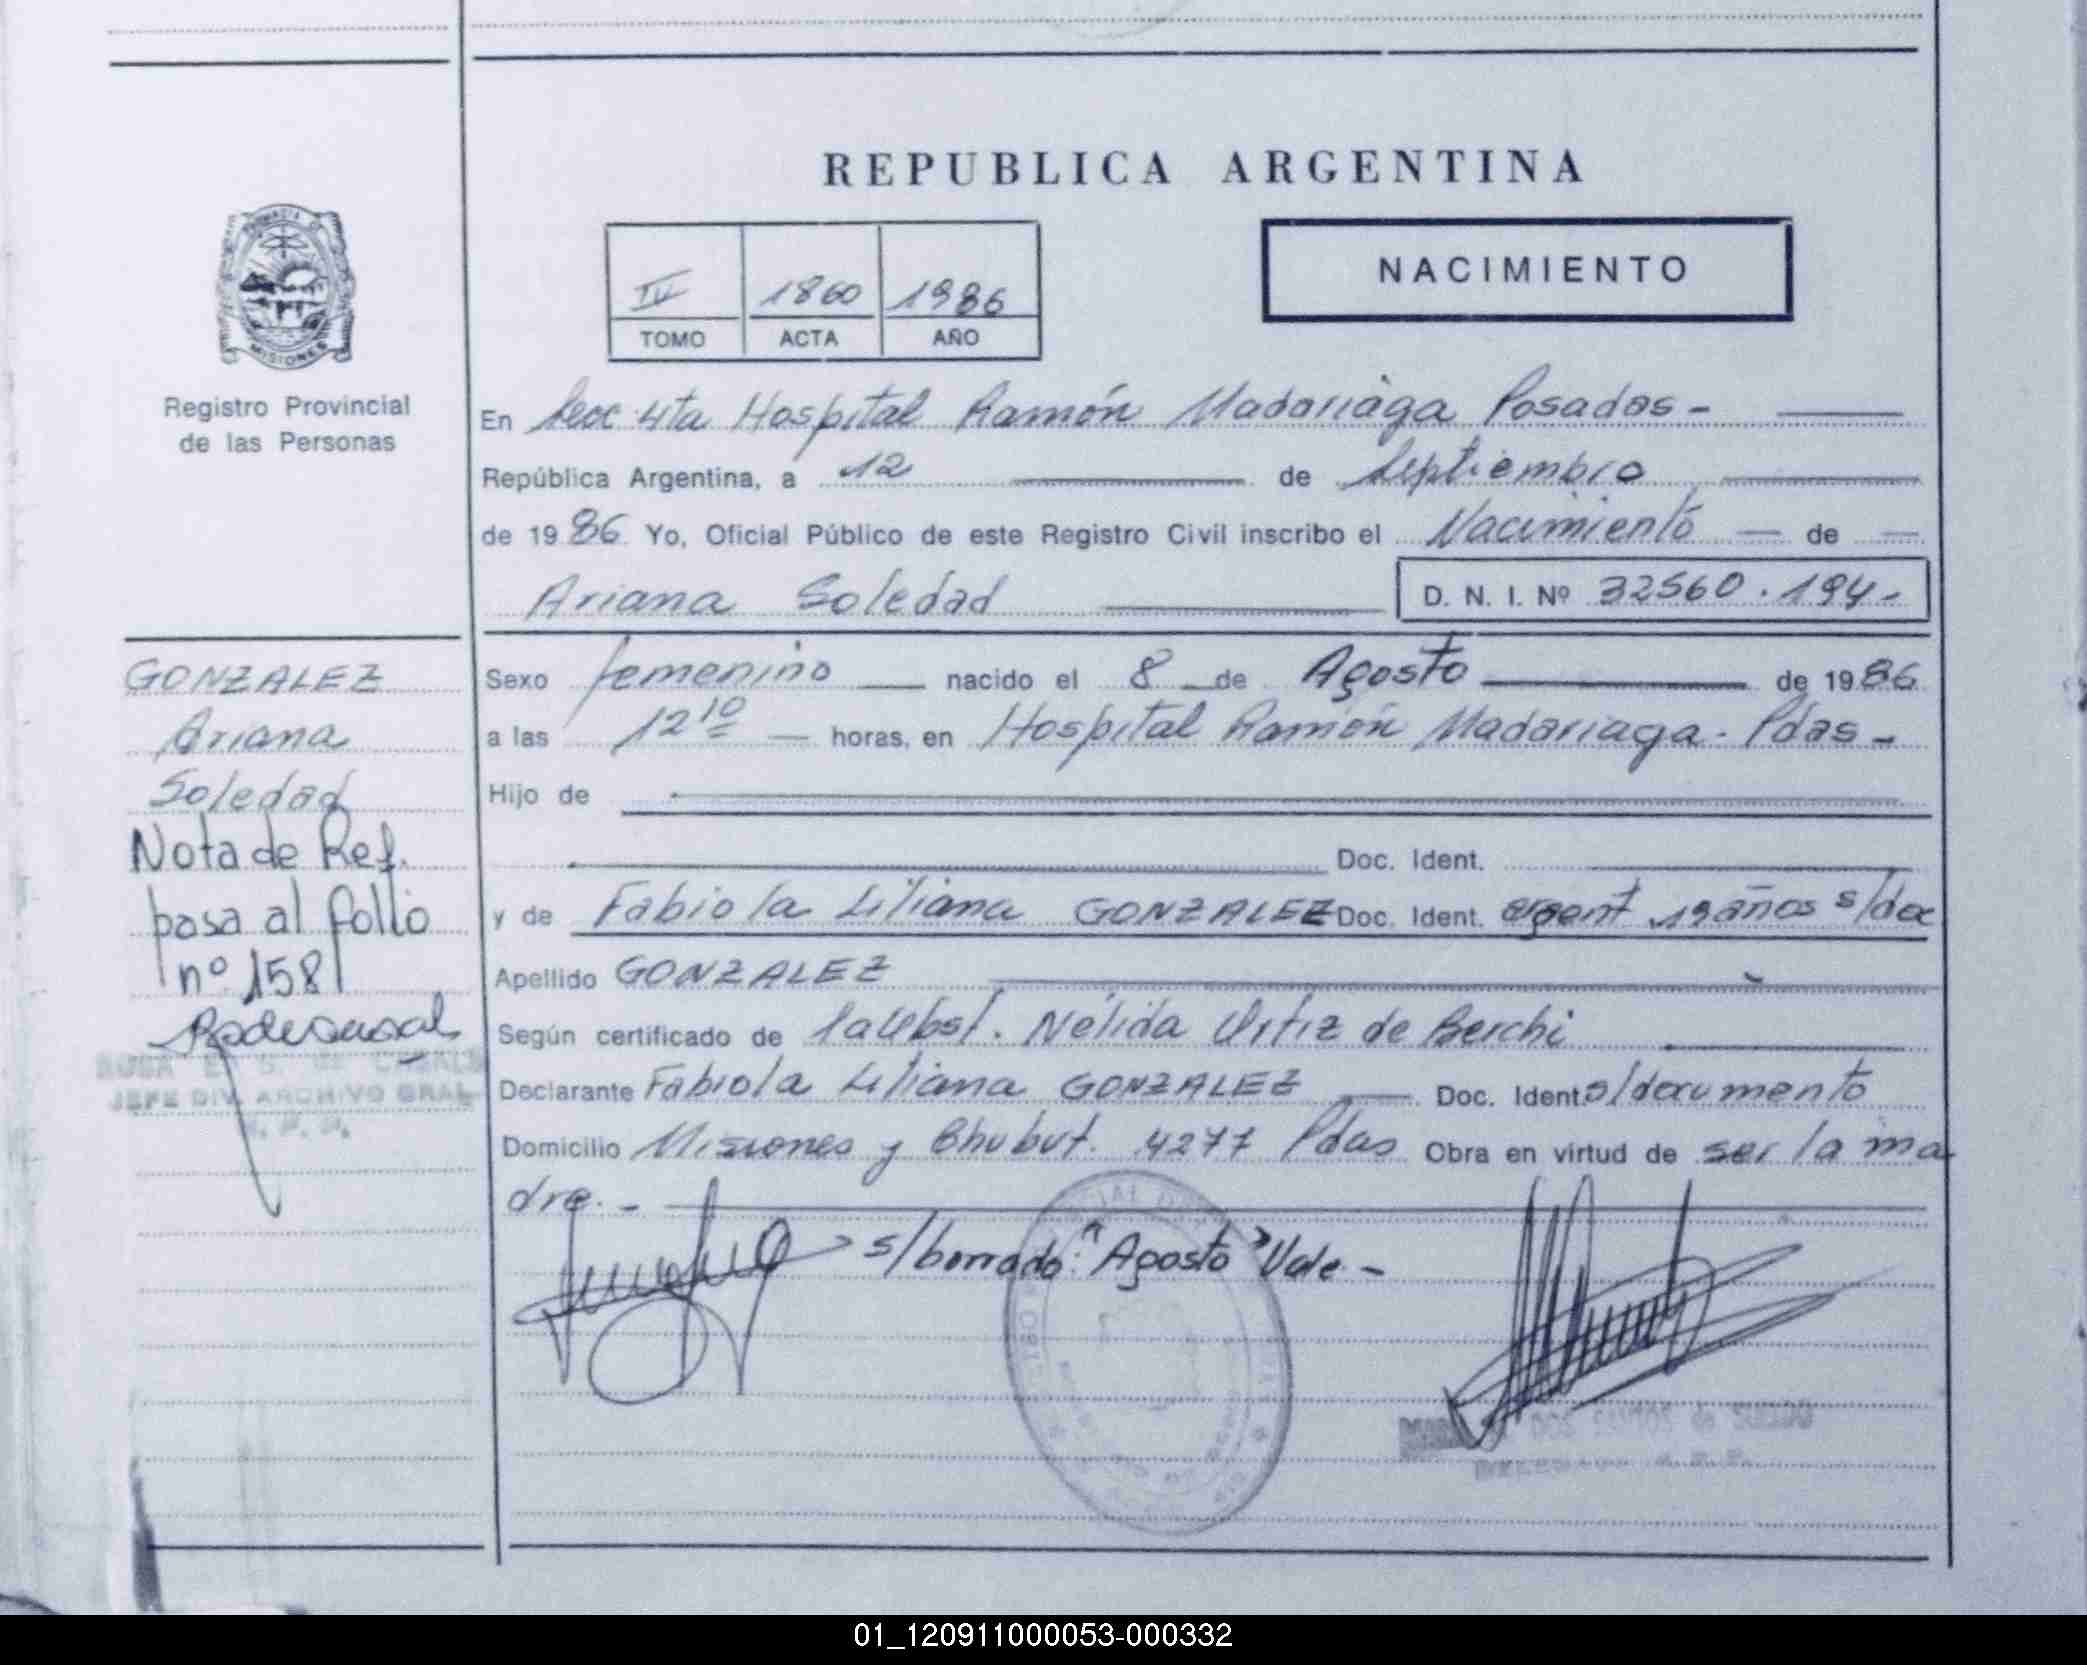 REPUBLICA ARGENTINA
NACIMIENTO
IV 1860 1986
TOMO ACTA AÑO
MISIONES
Registro Provincial
de las Personas
En Secc 4ta Hospital Ramón Madariaga Posadas -
República Argentina, a 12 de Septiembre
de 1986 Yo, Oficial Público de este Registro Civil inscribo el Nacimiento de
Ariana Soledad D. N. I. Nº 32560.194-
GONZALEZ
Ariana
Soledad
Nota de Ref.
pasa al folio
nº 158
JEFE DIV. ARCHIVO GRAL
Sexo femenino nacido el 8 de Agosto de 1986
a las 12 10 horas, en Hospital Ramón Madariaga - Pdas -
Hijo de
Doc. Ident.
y de Fabiola Liliana GONZALEZ Doc. Ident. argent 19 años s/doc
Apellido GONZALEZ
Según certificado de la Obst. Nélida Ortiz de Berchi
Declarante Fabiola Liliana GONZALEZ Doc. Ident. s/documento
Domicilio Misiones y Chubut. 4277 Pdas Obra en virtud de ser la ma
dre. -
s/borrado: "Agosto" Vale -
DOS SANTOS de
01_120911000053-000332